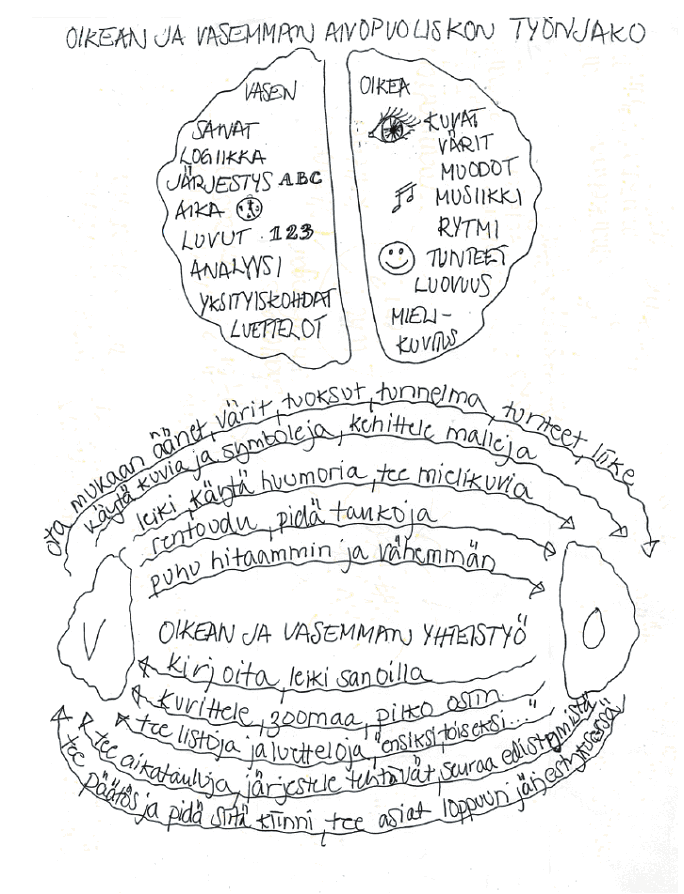 OIKEAN JA VASEMMAN AIVOPUOLISKON TYÖNJAKO
VASEN
SANAT
LOGIIKKA
JÄRJESTYS ABC
AIKA
LUVUT 123
ANALYYSI
YKSITYISKOHDAT
LUETTELOT
OIKEA
KUVAT
VÄRIT
MUODOT
MUSIIKKI
RYTMI
TUNTEET
LUOVUUS
MIELI-
KUVITUS
ota mukaan äänet, värit, tuoksut, tunnelma, tunteet, liike
käytä kuvia ja symboleja, kehittele malleja
leiki, käytä huumoria, tee mielikuvia
rentoudu, pidä taukoja
puhu hitaammin ja vähemmän
V
O
OIKEAN JA VASEMMAN YHTEISTYÖ
kirjoita, leiki sanoilla
kuvittele, zoomaa, pilko osiin
tee listoja ja luetteloja, "ensiksi, toiseksi..."
tee aikatauluja, järjestele tehtävät, seuraa edistymistä
tee päätös ja pidä siitä kiinni, tee asiat loppuun järjestyksessä